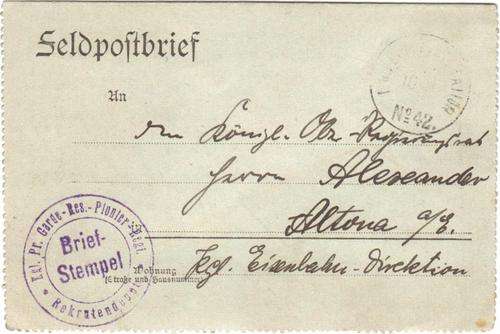 Feldpostbrief
An
den Königl. Ob.-Regierungsrat
Herrn Alexander
Altona a/E.
Kgl. Eisenbahn-Direktion
Wohnung
(Straße und Hausnummer)
Kgl. Pr. Garde-Res.-Pionier-Regt
Brief-
Stempel
Rekrutendepot
No 42.